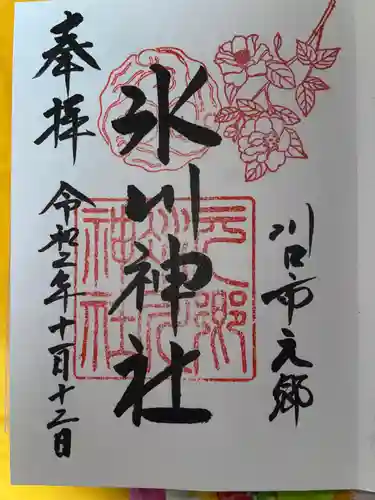 川口市元郷
氷川神社
奉拝
令和二年十一月十二日
元郷
氷川
神社